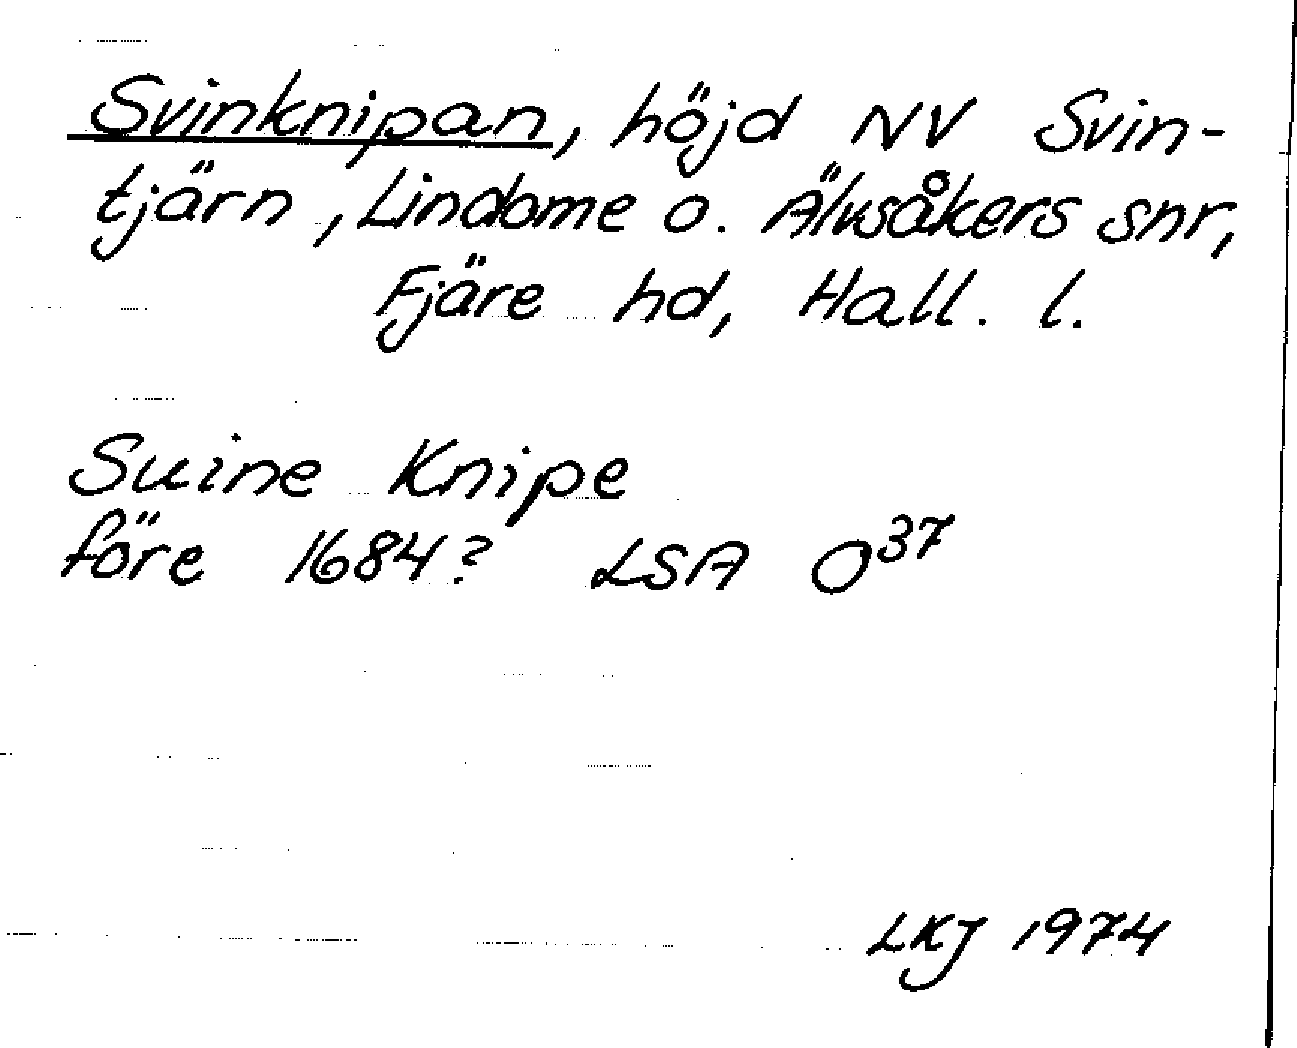 Svinknipan, höjd NV Svin-
tjärn, Lindome o. Älvsåkers snr,
Fjäre hd, Hall. l.
Suine Knipe
före 1684? LSA O³⁷
LKJ 1974